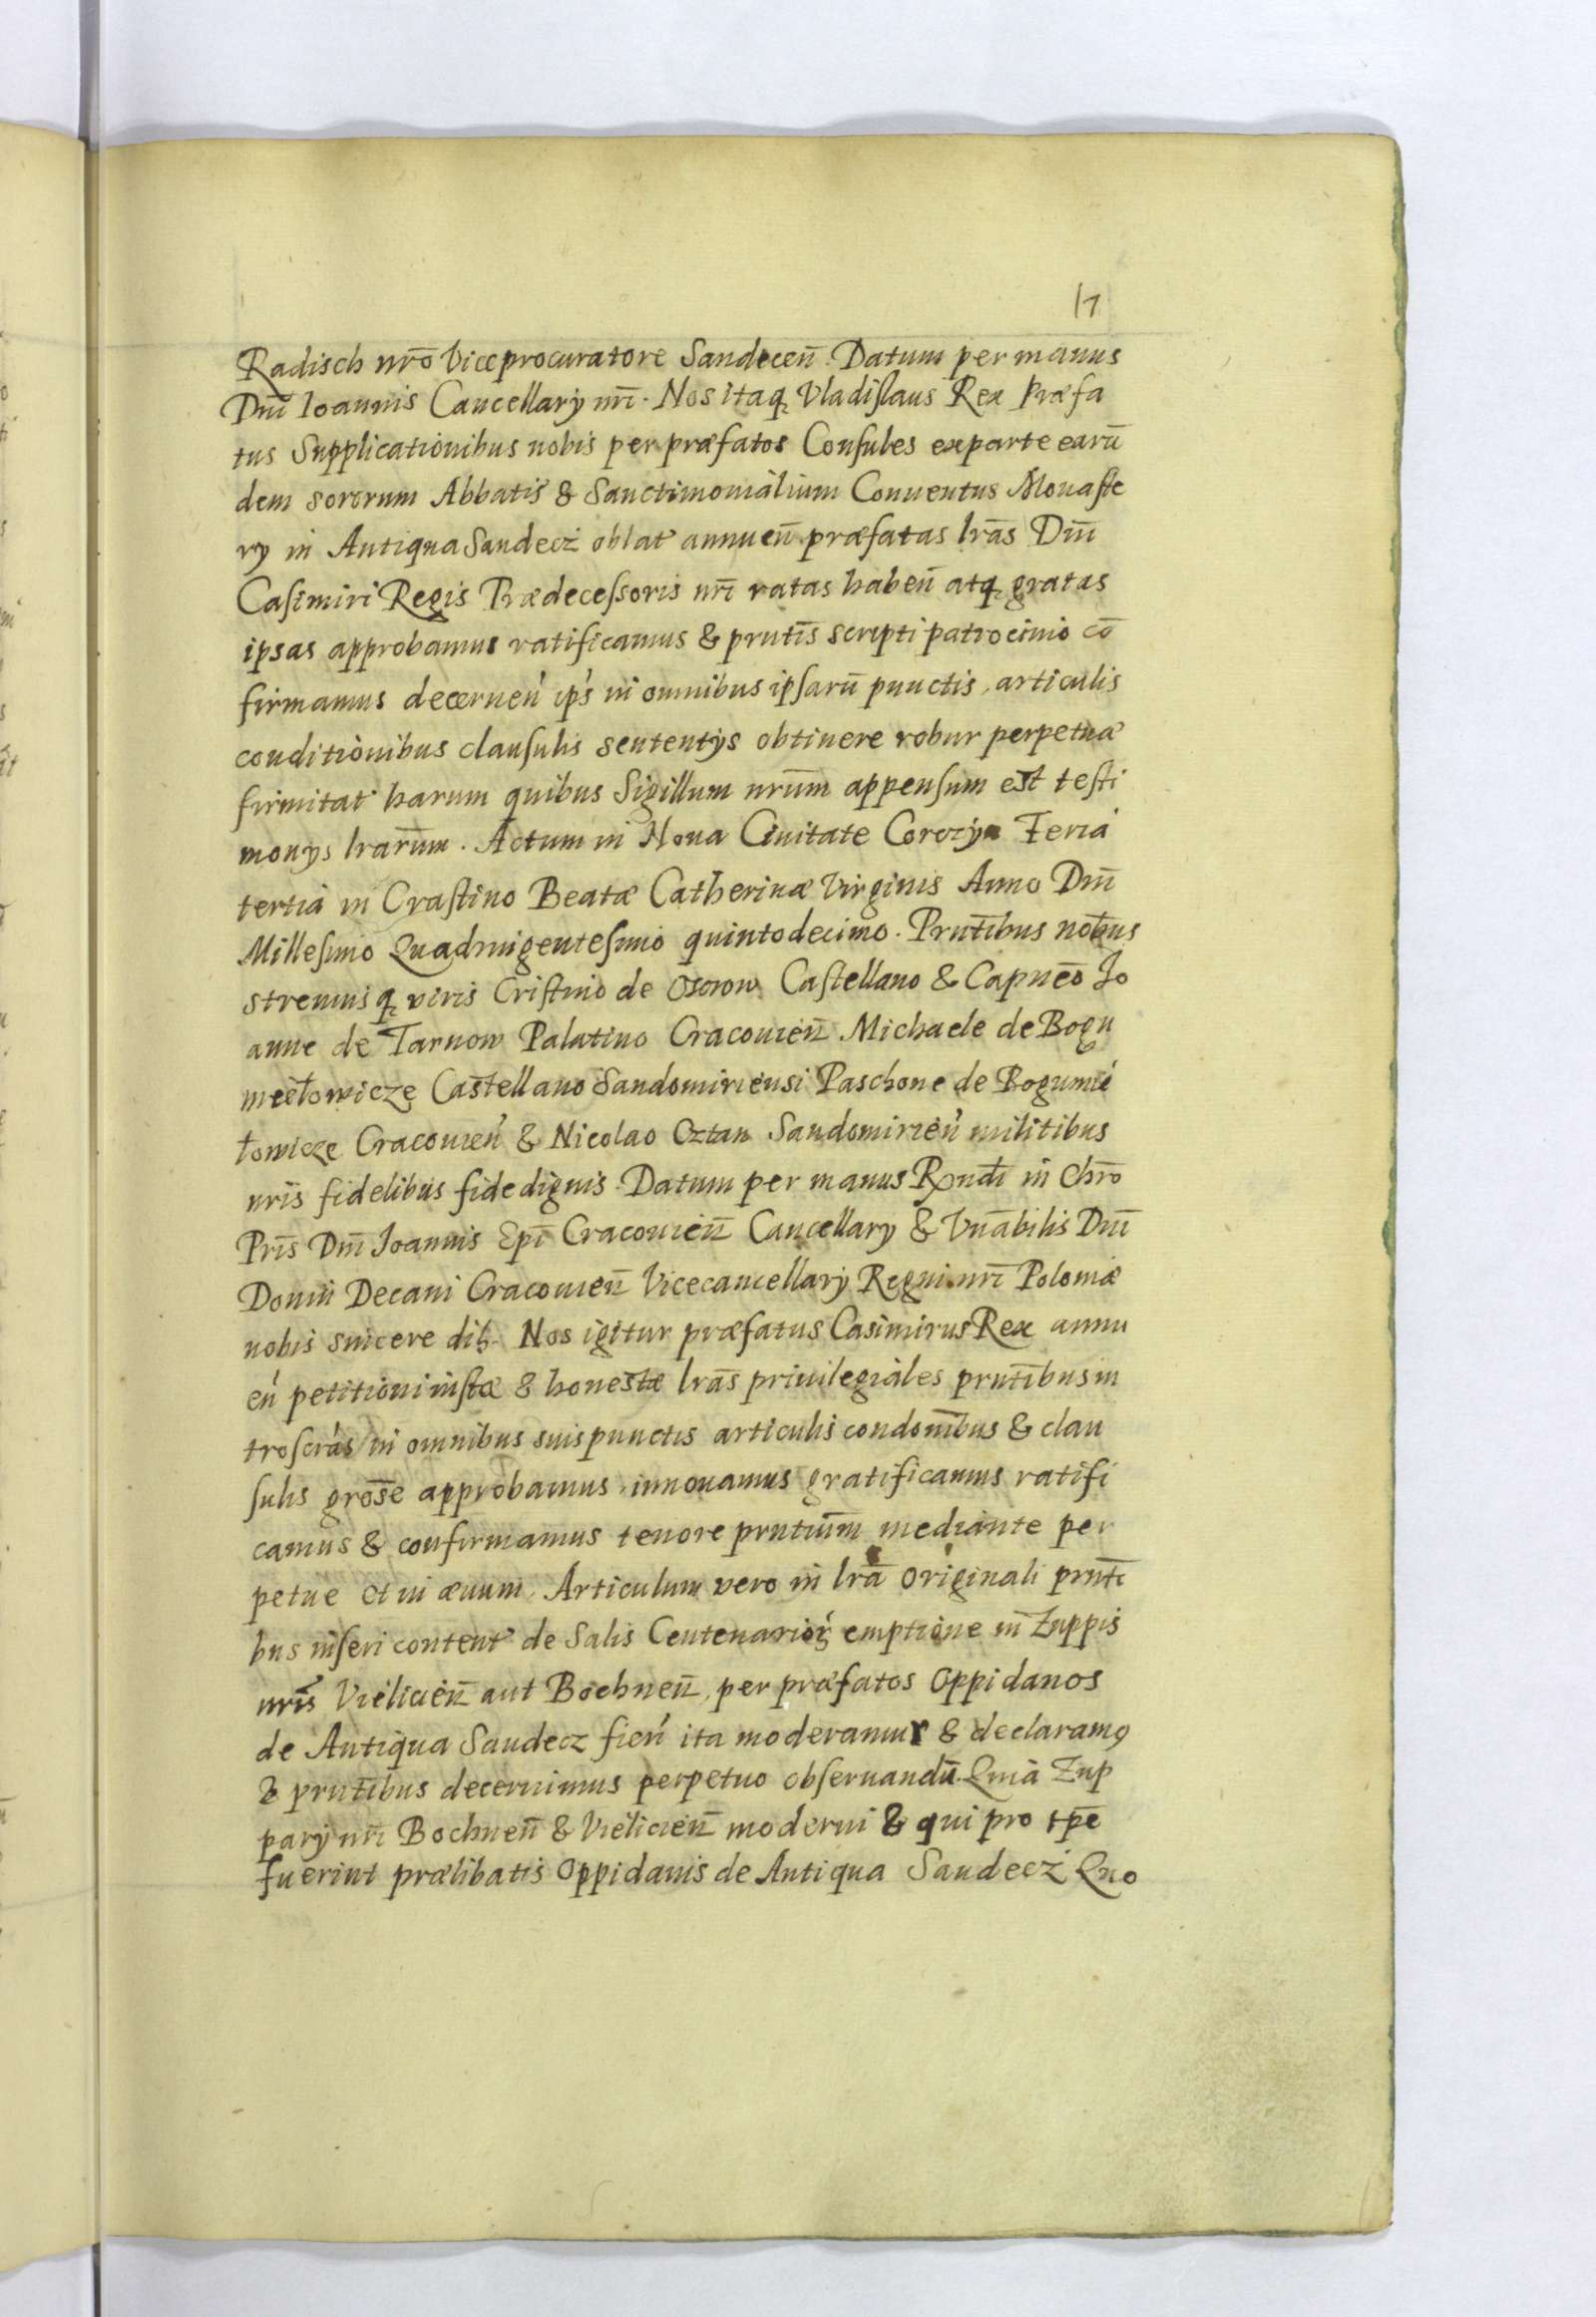 17
Radisch nr̄o Viceprocuratore Sandecen̄. Datum per manus
Dn̄i Ioannis Cancellarÿ nr̄i. Nos itaq Vladislaus Rex Præfa
tus Supplicationibus nobis per præfatos Consules ex parte earū
dem sororum Abbatis & Sanctimonialium Conuentus Monaste
rÿ in Antiqua Sandecz oblat annuen̄ præfatas lr̄as Dn̄i
Casimiri Regis Prædecessoris nr̄i ratas haben̄ atq gratas
ipsas approbamus ratificamus & pn̄tis scripti patrocinio cō
firmamus decernen ip̄s in omnibus ipsarū punctis, articulis
conditionibus clausulis sententÿs obtinere robur perpetuæ
firmitat harum quibus Sigillum nr̄um appensum est testi
monÿs lr̄arum. Actum in Noua Ciuitate Corczyn Feria
tertia in Crastino Beatæ Catherinæ Virginis Anno Dn̄i
Millesimo Quadringentesimo quintodecimo. Prn̄tibus nob̄us
strenuisq viris Cristino de Ostrow Castellano & Capn̄eo Jo
anne de Tarnow Palatino Cracouien̄ Michaele de Bogu
miełowicze Castellano Sandomiriensi Paschone de Bogumie
łowicze Cracouien & Nicolao Oztan Sandomirien militibus
nr̄is fidelibus fide dignis. Datum per manus Rndi in Chr̄o
Pr̄is Dn̄i Joannis Ep̄i Cracouien̄ Cancellarÿ & Vn̄abilis Dn̄i
Donin Decani Cracouien̄ Vicecancellarÿ Regni nr̄i Poloniæ
nobis sincere dil. Nos igitur præfatus Casimirus Rex annu
en petitioni iustæ & honestæ lr̄as priuilegiales prn̄tibus in
troscr̄as in omnibus suis punctis articulis condōnibus & clau
sulis gr̄ose approbamus, innouamus gratificamus ratifi
camus & confirmamus tenore prn̄tium mediante per
petue et in æuum. Articulum vero in lr̄a originali prn̄ti
bus inseri content de Salis Centenarior emptione in Zuppis
nr̄is Vielicien̄ aut Bochnen̄, per præfatos Oppidanos
de Antiqua Sandecz fien ita moderamur & declaramꝯ
& prn̄tibus decernimus perpetuo obseruandū. Quia Zup
parÿ nr̄i Bochnen̄ & Vielicien̄ moderni & qui pro tp̄e
fuerint prælibatis Oppidanis de Antiqua Sandecz Quo